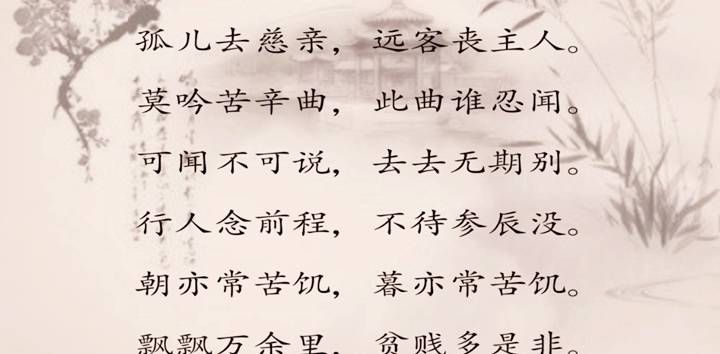 孤儿去慈亲，远客丧主人。
莫吟苦辛曲，此曲谁忍闻。
可闻不可说，去去无期别。
行人念前程，不待参辰没。
朝亦常苦饥，暮亦常苦饥。
飘飘万余里，贫贱多是非。